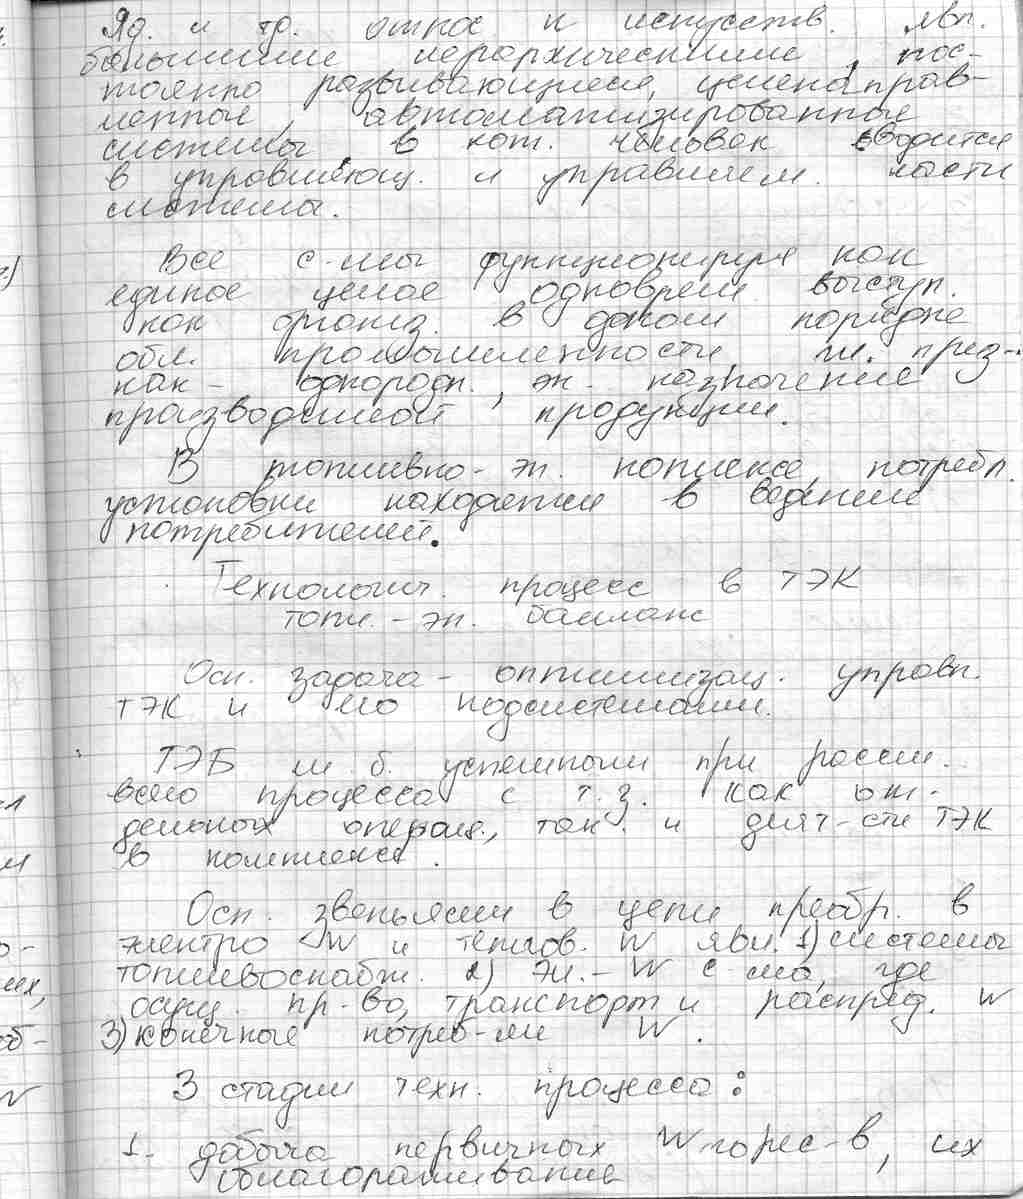 Яд. и др. относ к искусств. явл.
большими иерархическими, пос-
тоянно развивающиеся, целенаправ-
ленные, автоматизированные
системы, в кот. человек вводится
в управляющ. и управляем. части
системы.
Все с-мы функционируя как
единое целое одноврем. выступ.
как органз. в одном порядке
обл. промышленности,
как однородн., эк. назначение
производимой продукции.
В топливно-эн. комплексе потребл.
установки находятся в ведении
потребителей.
Технологич. процесс в ТЭК
топл.-эн. баланс
Осн. задача - оптимизац. управл.
ТЭК и его подсистемами.
ТЭБ м.б. успешным при рассм.
всего процесса с т.з. как от-
дельных операц., так и деят-сти ТЭК
в комплексе.
Осн. звеньями в цепи преобр. в
электро W и теплов. W явл. 1) системы
топливоснабж. 2) Эл.-W с-ма, где
осущ. пр-во, транспорт и распред. W
3) конечные потреб-ли W.
3 стадии техн. процесса:
1. добыча первичных W торес-в, их
облагораживание